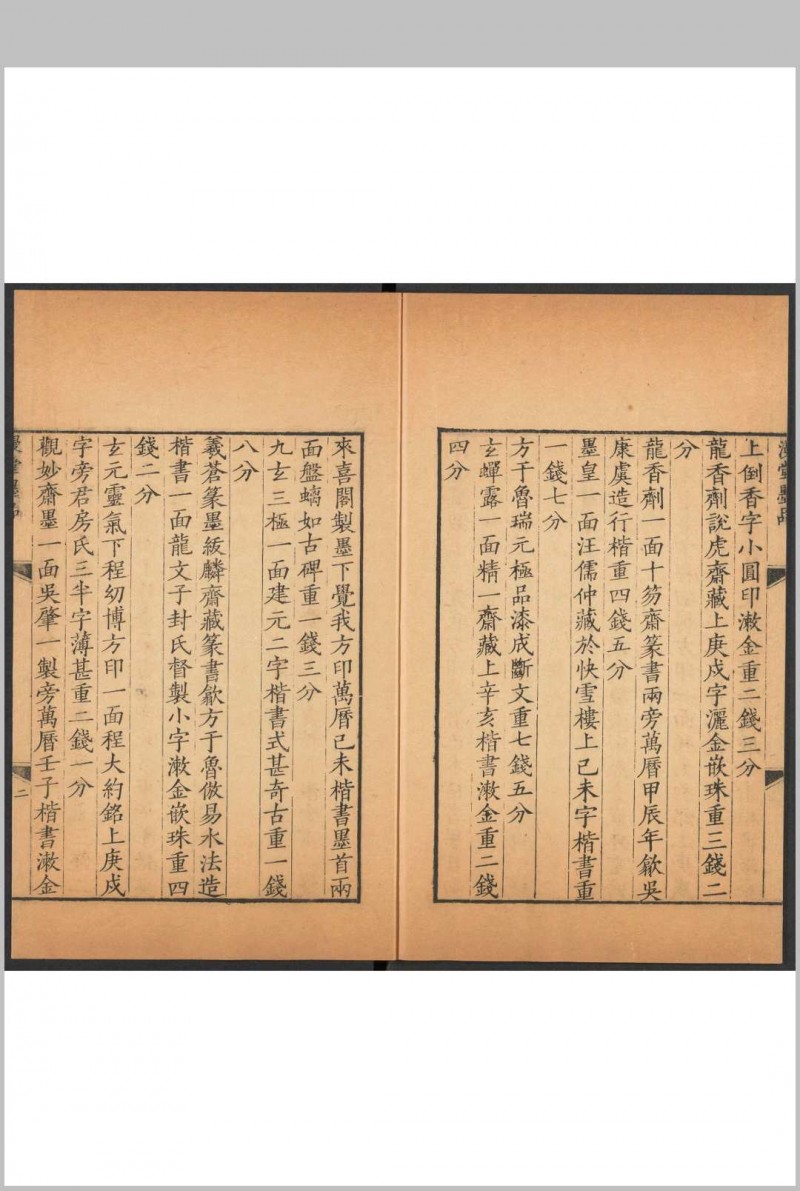 漫堂墨品
上倒香字小圓印漱金重二錢三分
龍香劑說虎齋藏上庚戌字灑金嵌珠重三錢二
分
龍香劑一面十笏齋篆書兩旁萬曆甲辰年歙吳
康虞造行楷重四錢五分
墨皇一面汪儒仲藏於快雪樓上己未字楷書重
一錢七分
方于魯瑞元極品漆成斷文重七錢五分
玄蟬露一面精一齋藏上辛亥楷書漱金重二錢
四分
來喜閣製墨下覺我方印萬曆己未楷書墨首兩
面盤螭如古碑重一錢三分
九玄三極一面建元二字楷書式甚奇古重一錢
八分
羲蒼篆墨紱麟齋藏篆書歙方于魯倣易水法造
楷書一面龍文子封氏督製小字漱金嵌珠重四
錢二分
玄元靈氣下程幼博方印一面程大約銘上庚戌
字旁君房氏三半字薄甚重二錢一分
觀妙齋墨一面吳肇一製旁萬曆壬子楷書漱金
漫堂墨品
二